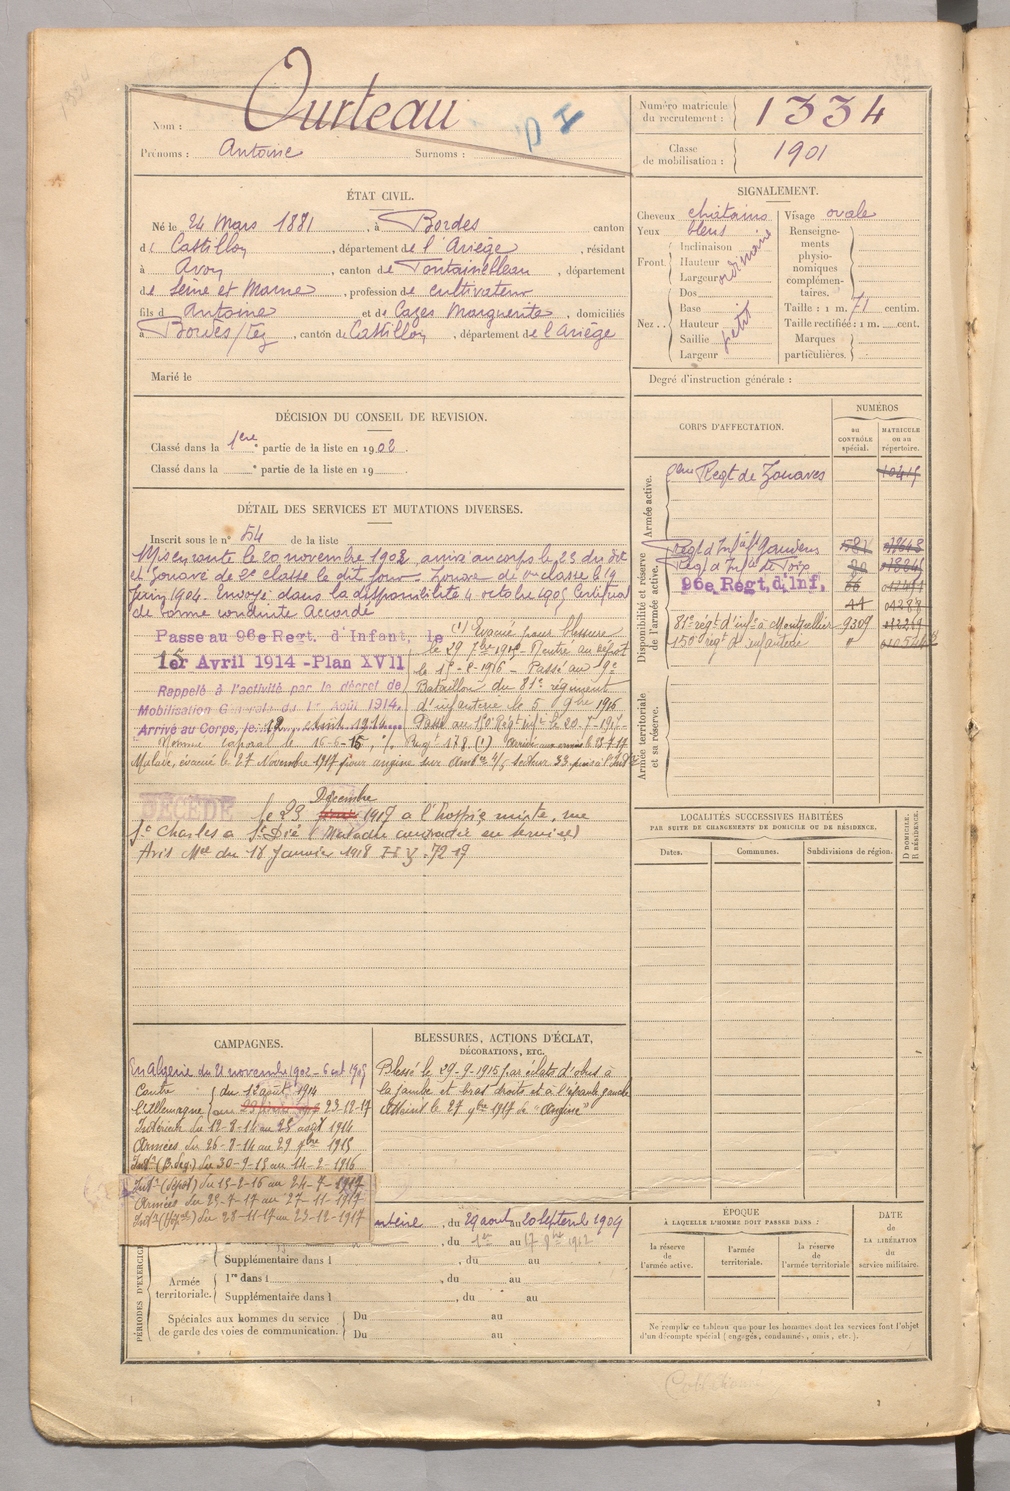 Nom : Ourteau
Prénoms : Antoine Surnoms :
Numéro matricule du recrutement : 1334
Classe de mobilisation : 1901
ÉTAT CIVIL.
Né le 24 Mars 1881, à Bordes canton
de Castillon, département de l'Ariège, résidant
à Avon, canton de Fontainebleau, département
de Seine et Marne, profession de cultivateur
fils d'Antoine et de Cazes Marguerite, domiciliés
à Bordes/Lez, canton de Castillon, département de l'Ariège
Marié le
SIGNALEMENT.
Cheveux chatains Visage ovale
Yeux bleus
Front. Inclinaison
Hauteur
Largeur
ordinaire
Nez.. Dos
Base
Hauteur
Saillie
Largeur
petit
Renseignements physionomiques complémentaires.
Taille : 1 m. 71 centim.
Taille rectifiée : 1 m. cent.
Marques particulières.
Degré d'instruction générale :
DÉCISION DU CONSEIL DE REVISION.
Classé dans la 1ere partie de la liste en 1902.
Classé dans la e partie de la liste en 19
CORPS D'AFFECTATION.
NUMÉROS
AU CONTRÔLE spécial.
MATRICULE ou au répertoire.
Armée active.
Regt de Zouaves
Disponibilité et réserve de l'armée active.
Regt d'Inf
96e Regt. d'Inf.
81e régt d'infie à Montpellier 9309
150e régt d'infanterie "
Armée territoriale et sa réserve.
DÉTAIL DES SERVICES ET MUTATIONS DIVERSES.
Inscrit sous le n° 54 de la liste
Mis en route le 20 novembre 1902, arrivé au corps le 23 du dit
et Zouave de 2e classe le dit jour. Zouave de 1re classe le 19
juin 1904. Envoyé dans la disponibilité 4 octobre 1905 Certificat
de bonne conduite Accordé
Passe au 96e Regt. d'Infant. le
1er Avril 1914 - Plan XVII
Rappelé à l'activité par le décret de
Mobilisation Générale du 1er Août 1914.
Arrivé au Corps, le 12 Août 1914.
(1) Evacué pour blessure
le 29 7bre 1915 - Rentré au dépôt
Passé au 9e
Bataillon du 81e régiment
d'infanterie le 5 9bre 1916
Passé au 150 Régt infie le 20-7-1917
Nommé caporal le 16-6-15,
Malade, évacué le 27 Novembre 1917 pour angine sur
DÉCÉDÉ
le 23 Décembre 1917 à l'hospice mixte, rue
St Charles à St Dié (Maladie contractée en service)
Avis Mel du 18 Janvier 1918
LOCALITÉS SUCCESSIVES HABITÉES
PAR SUITE DE CHANGEMENTS DE DOMICILE OU DE RÉSIDENCE.
Dates. Communes. Subdivisions de région. D DOMICILE. R RÉSIDENCE.
CAMPAGNES.
En Algérie du 21 novembre 1902 - 6 oct 1905
Contre l'Allemagne du 12 août 1914
au 23-12-17
Intérieur du 12-8-14 au 25 août 1914
Armées du 26-8-14 au 29 9bre 1915
Intr (B. deg.) du 30-9-15 au 14-2-1916
Intr (dépot) du 15-2-16 au 24-7-1917
Armées du 25-7-17 au 27-11-1917
Intr (Hopal) du 28-11-17 au 23-12-1917
BLESSURES, ACTIONS D'ÉCLAT,
DÉCORATIONS, ETC.
Blessé le 29-9-1915 par éclats d'obus à
la jambe et bras droits et à l'épaule gauche
Atteint le 27 9bre 1917 d' "Angine"
PÉRIODES D'EXERCICES
, du 29 août au 20 septemb 1909
du 1er au 17 9bre 1912
Supplémentaire dans l , du au
Armée territoriale.
1re dans l , du au
Supplémentaire dans l , du au
Spéciales aux hommes du service de garde des voies de communication.
Du au
Du au
ÉPOQUE
À LAQUELLE L'HOMME DOIT PASSER DANS :
la réserve de l'armée active.
l'armée territoriale.
la réserve de l'armée territoriale
DATE DE LA LIBÉRATION du service militaire.
Ne remplir ce tableau que pour les hommes dont les services font l'objet
d'un décompte spécial (engagés, condamnés, omis, etc.).